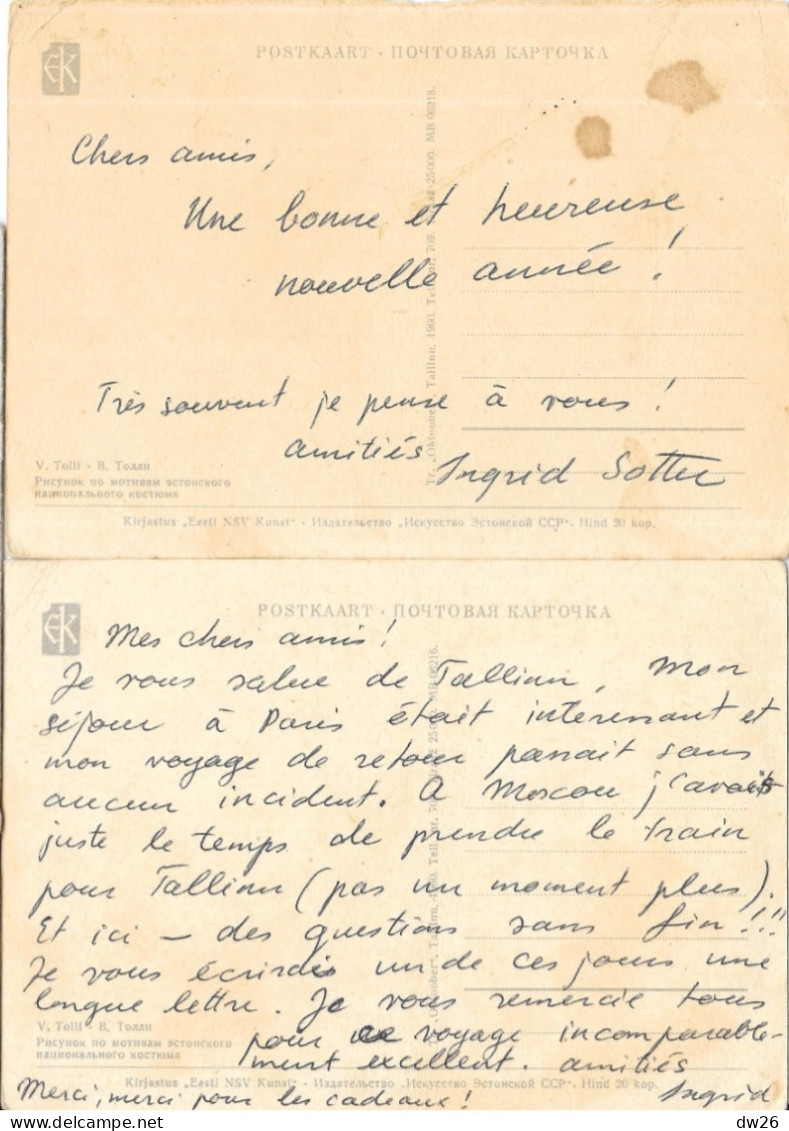 POSTKAART · ПОЧТОВАЯ КАРТОЧКА
Chers amis,
Une bonne et heureuse
nouvelle année !
Très souvent je pense à vous !
amitiés
Ingrid Sotter
V. Tolli - В. Толли
Рисунок по мотивам эстонского
национального костюма
Kirjastus „Eesti NSV Kunst" · Издательство „Искусство Эстонской ССР". Hind 20 kop.
POSTKAART · ПОЧТОВАЯ КАРТОЧКА
Mes chers amis !
Je vous salue de Tallinn, Mon
séjour à Paris était interessant et
mon voyage de retour passait sans
aucun incident. A Moscou j'avais
juste le temps de prendre le train
pour Tallinn (pas un moment plus).
Et ici — des questions sans fin !!!
Je vous écrirais un de ces jours une
longue lettre. Je vous remercie tous
pour ce voyage incomparable-
ment excellent. amitiés
Ingrid
Merci, merci pour les cadeaux !
V. Tolli - В. Толли
Рисунок по мотивам эстонского
национального костюма
Kirjastus „Eesti NSV Kunst" · Издательство „Искусство Эстонской ССР". Hind 20 kop.
www.delcampe.net
dw26